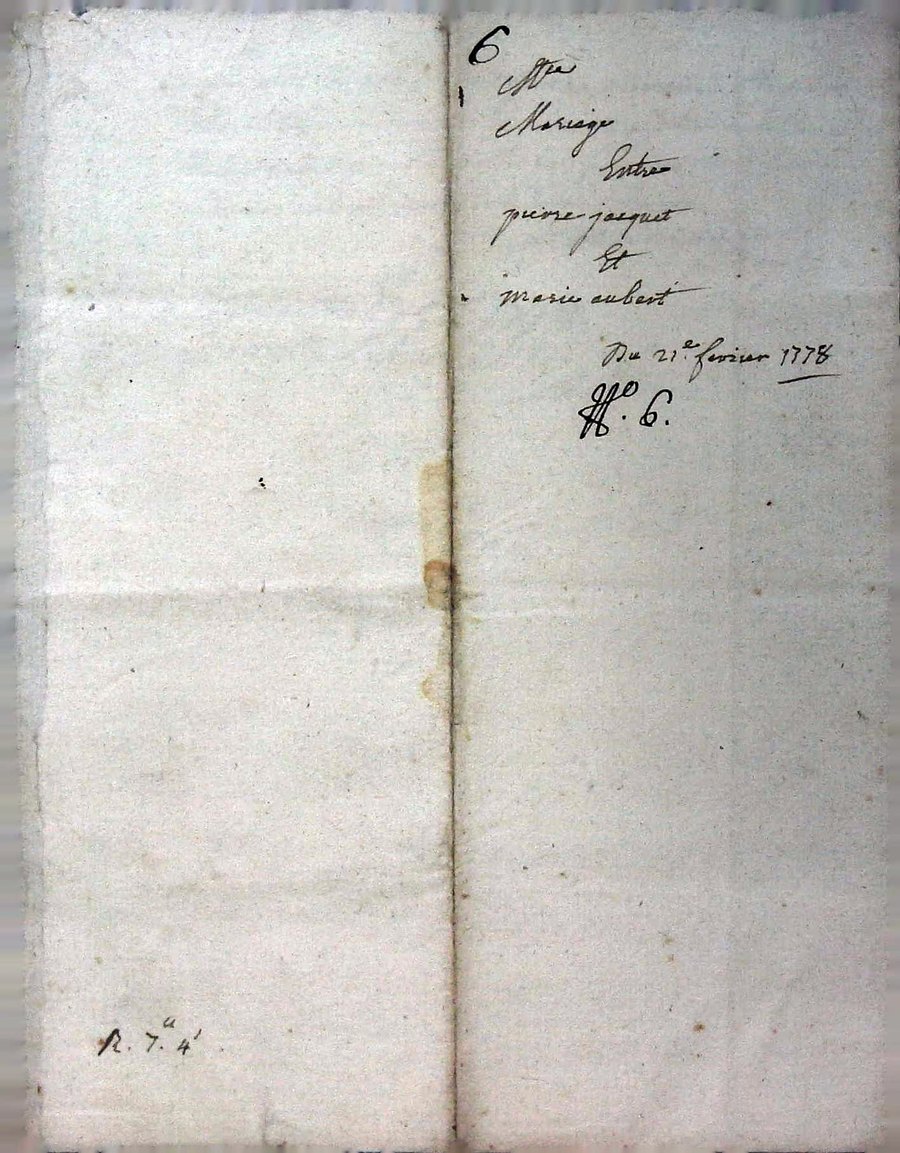 6
Mariage
Entre
pierre jacquet
Et
marie aubert
Du 21.e fevrier 1778
No. 6.
R. 7.